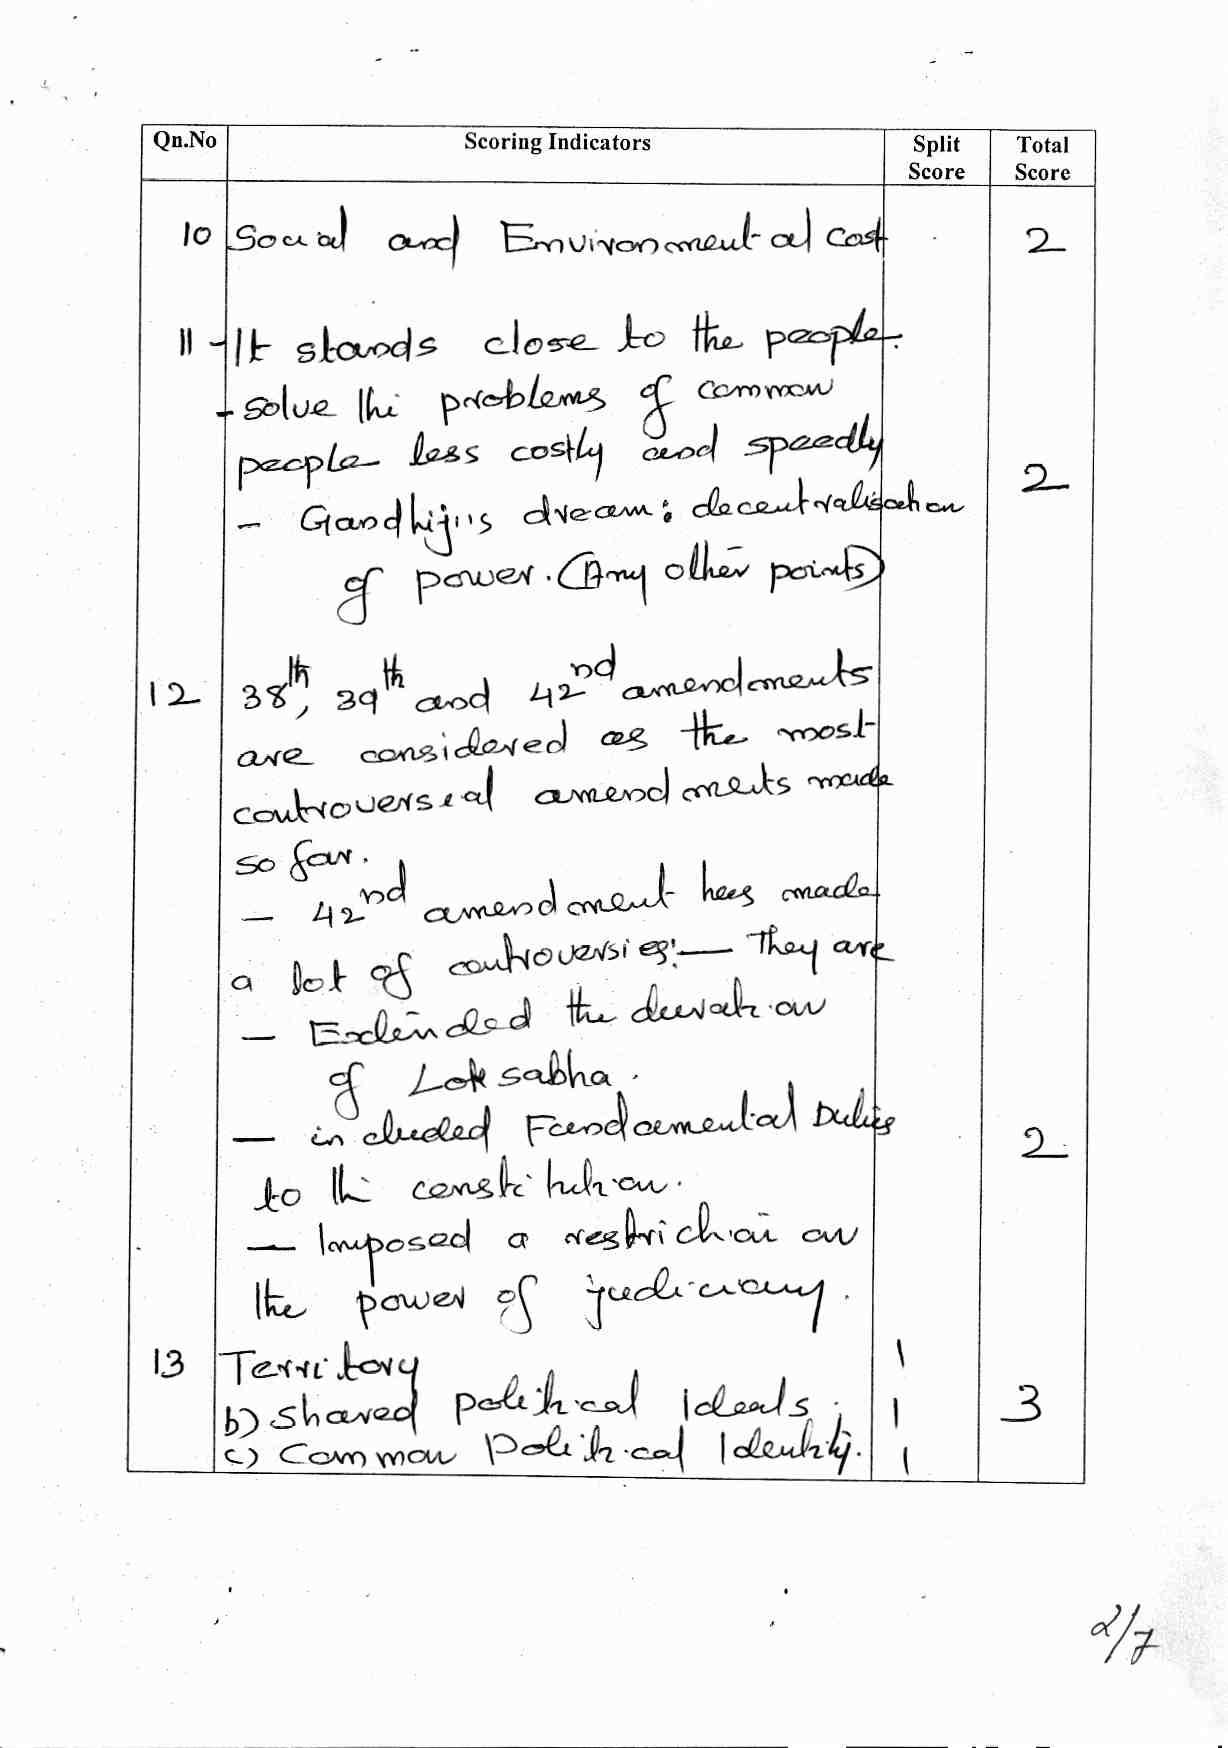 Qn.No Scoring Indicators Split Score Total Score
10 Social and Environmental cost 2
11 - It stands close to the people.
- solve the problems of common
people less costly and speedly 2
- Gandhiji's dream: decentralisation
of power. (Any other points)
12 38th, 39th and 42nd amendments
are considered as the most
controversial amendments made
so far.
- 42nd amendment has made
a lot of controversies:- They are
- Extended the duration
of Lok sabha.
- included Fundamental Duties 2
to the constitution.
- Imposed a restriction on
the power of judiciary.
13 Territory 1
b) Shared political Ideals. 1 3
c) Common Political Identity. 1
2/7